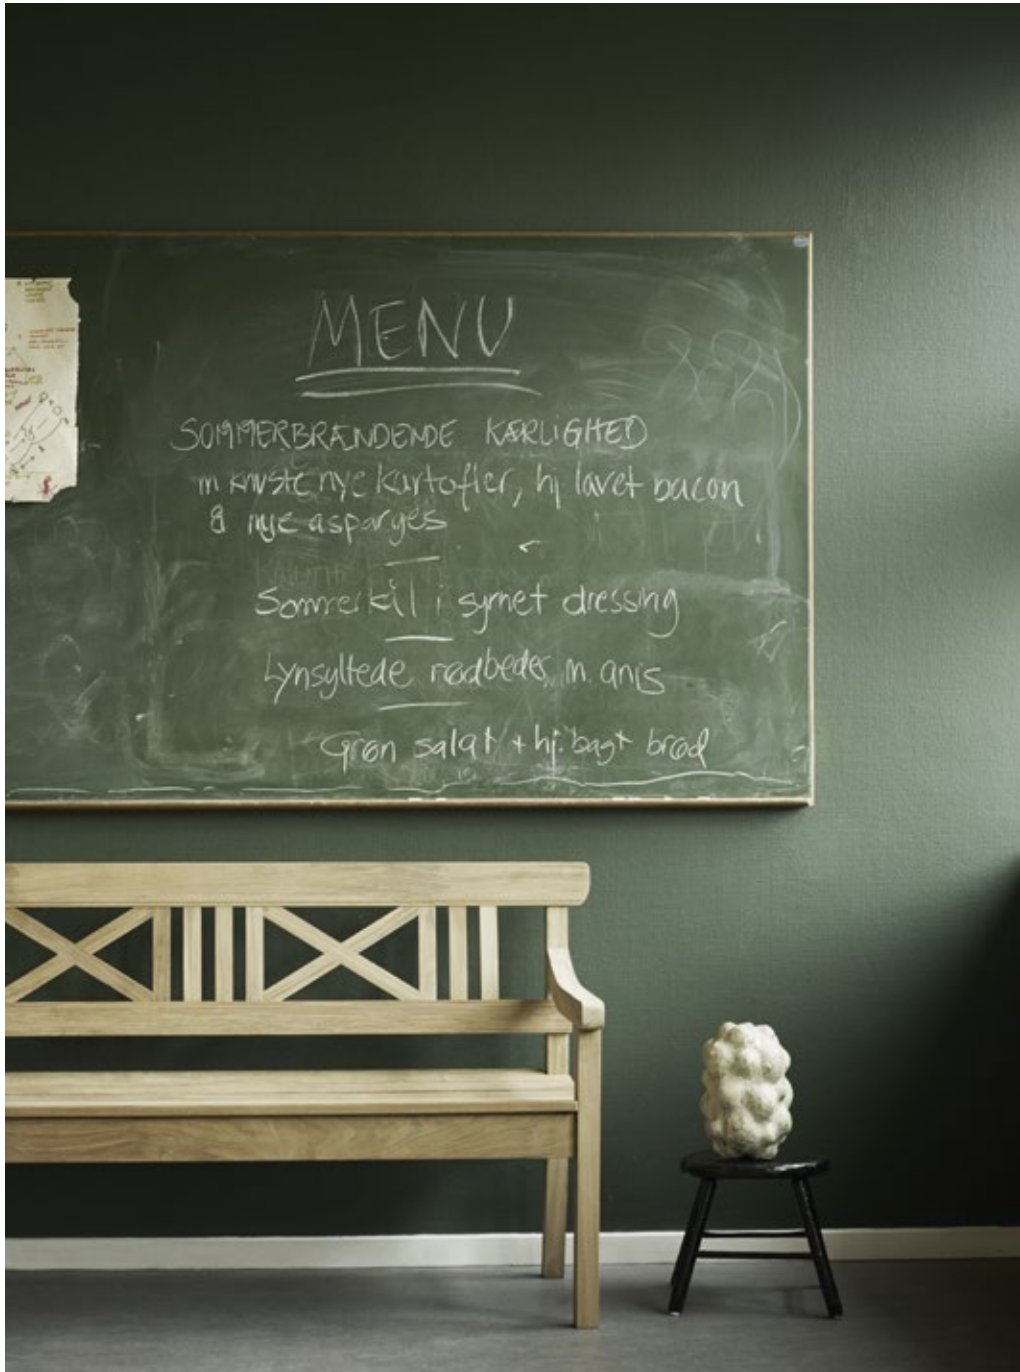 MENU
SOMMERBRÆNDENDE KÆRLIGHED
m knuste nye kartofler, hj lavet bacon
& nye asparges
Sommerkål i syrnet dressing
Lynsyltede rødbeder m. anis
Grøn salat + hj. bagt brød